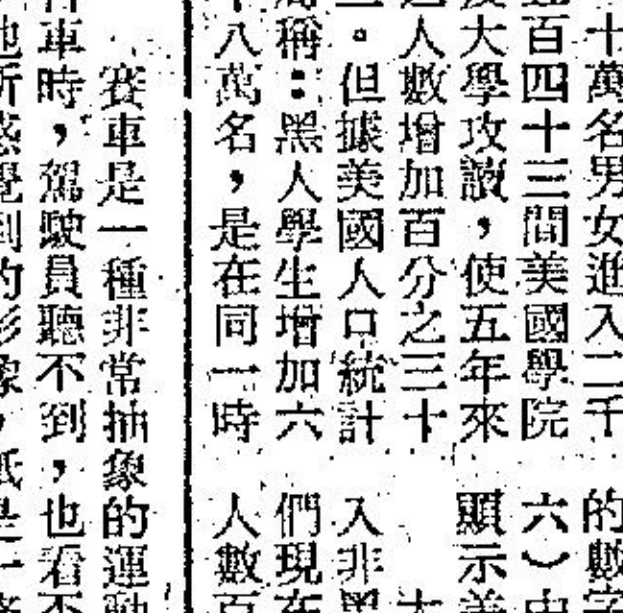 十萬名男女進入二千
百四十三間美國學院
大學攻讀，使五年來
人數增加百分之三十
。但據美國人口統計
稱：黑人學生增加六
八萬名，是在同一時
的數字
六）中
顯示美
入非黑
們現在
人數百
賽車是一種非常抽象的運動
車時，駕駛員聽不到，也看不
他所感覺到的影像，祇是一